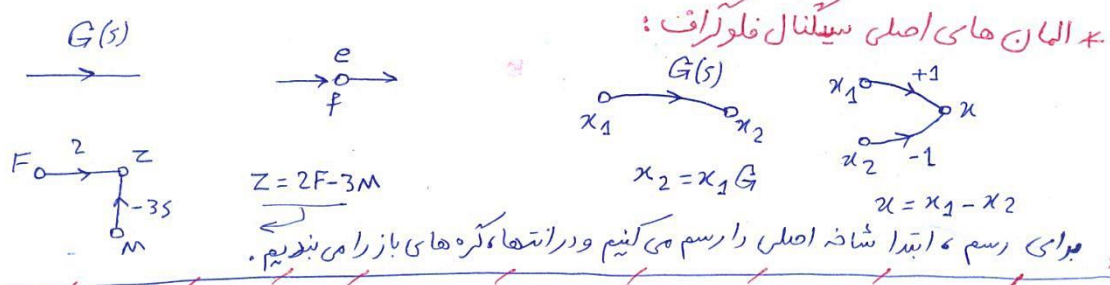 * المان های اصلی سیگنال فلوگراف:
G(s)
e
f
G(s)
x1
x2
x2 = x1 G
x1
+1
x
x2
-1
x = x1 - x2
F
2
Z
-3s
M
Z = 2F-3M
برای رسم، ابتدا شاخه اصلی را رسم می کنیم و در انتها، گره های باز را می بندیم.